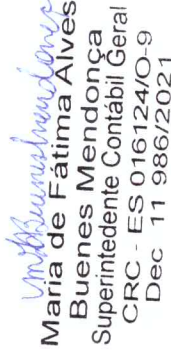 Maria de Fátima Alves
Buenes Mendonça
Superintedente Contábil Geral
CRC - ES 016124/O-9
Dec 11 986/2021